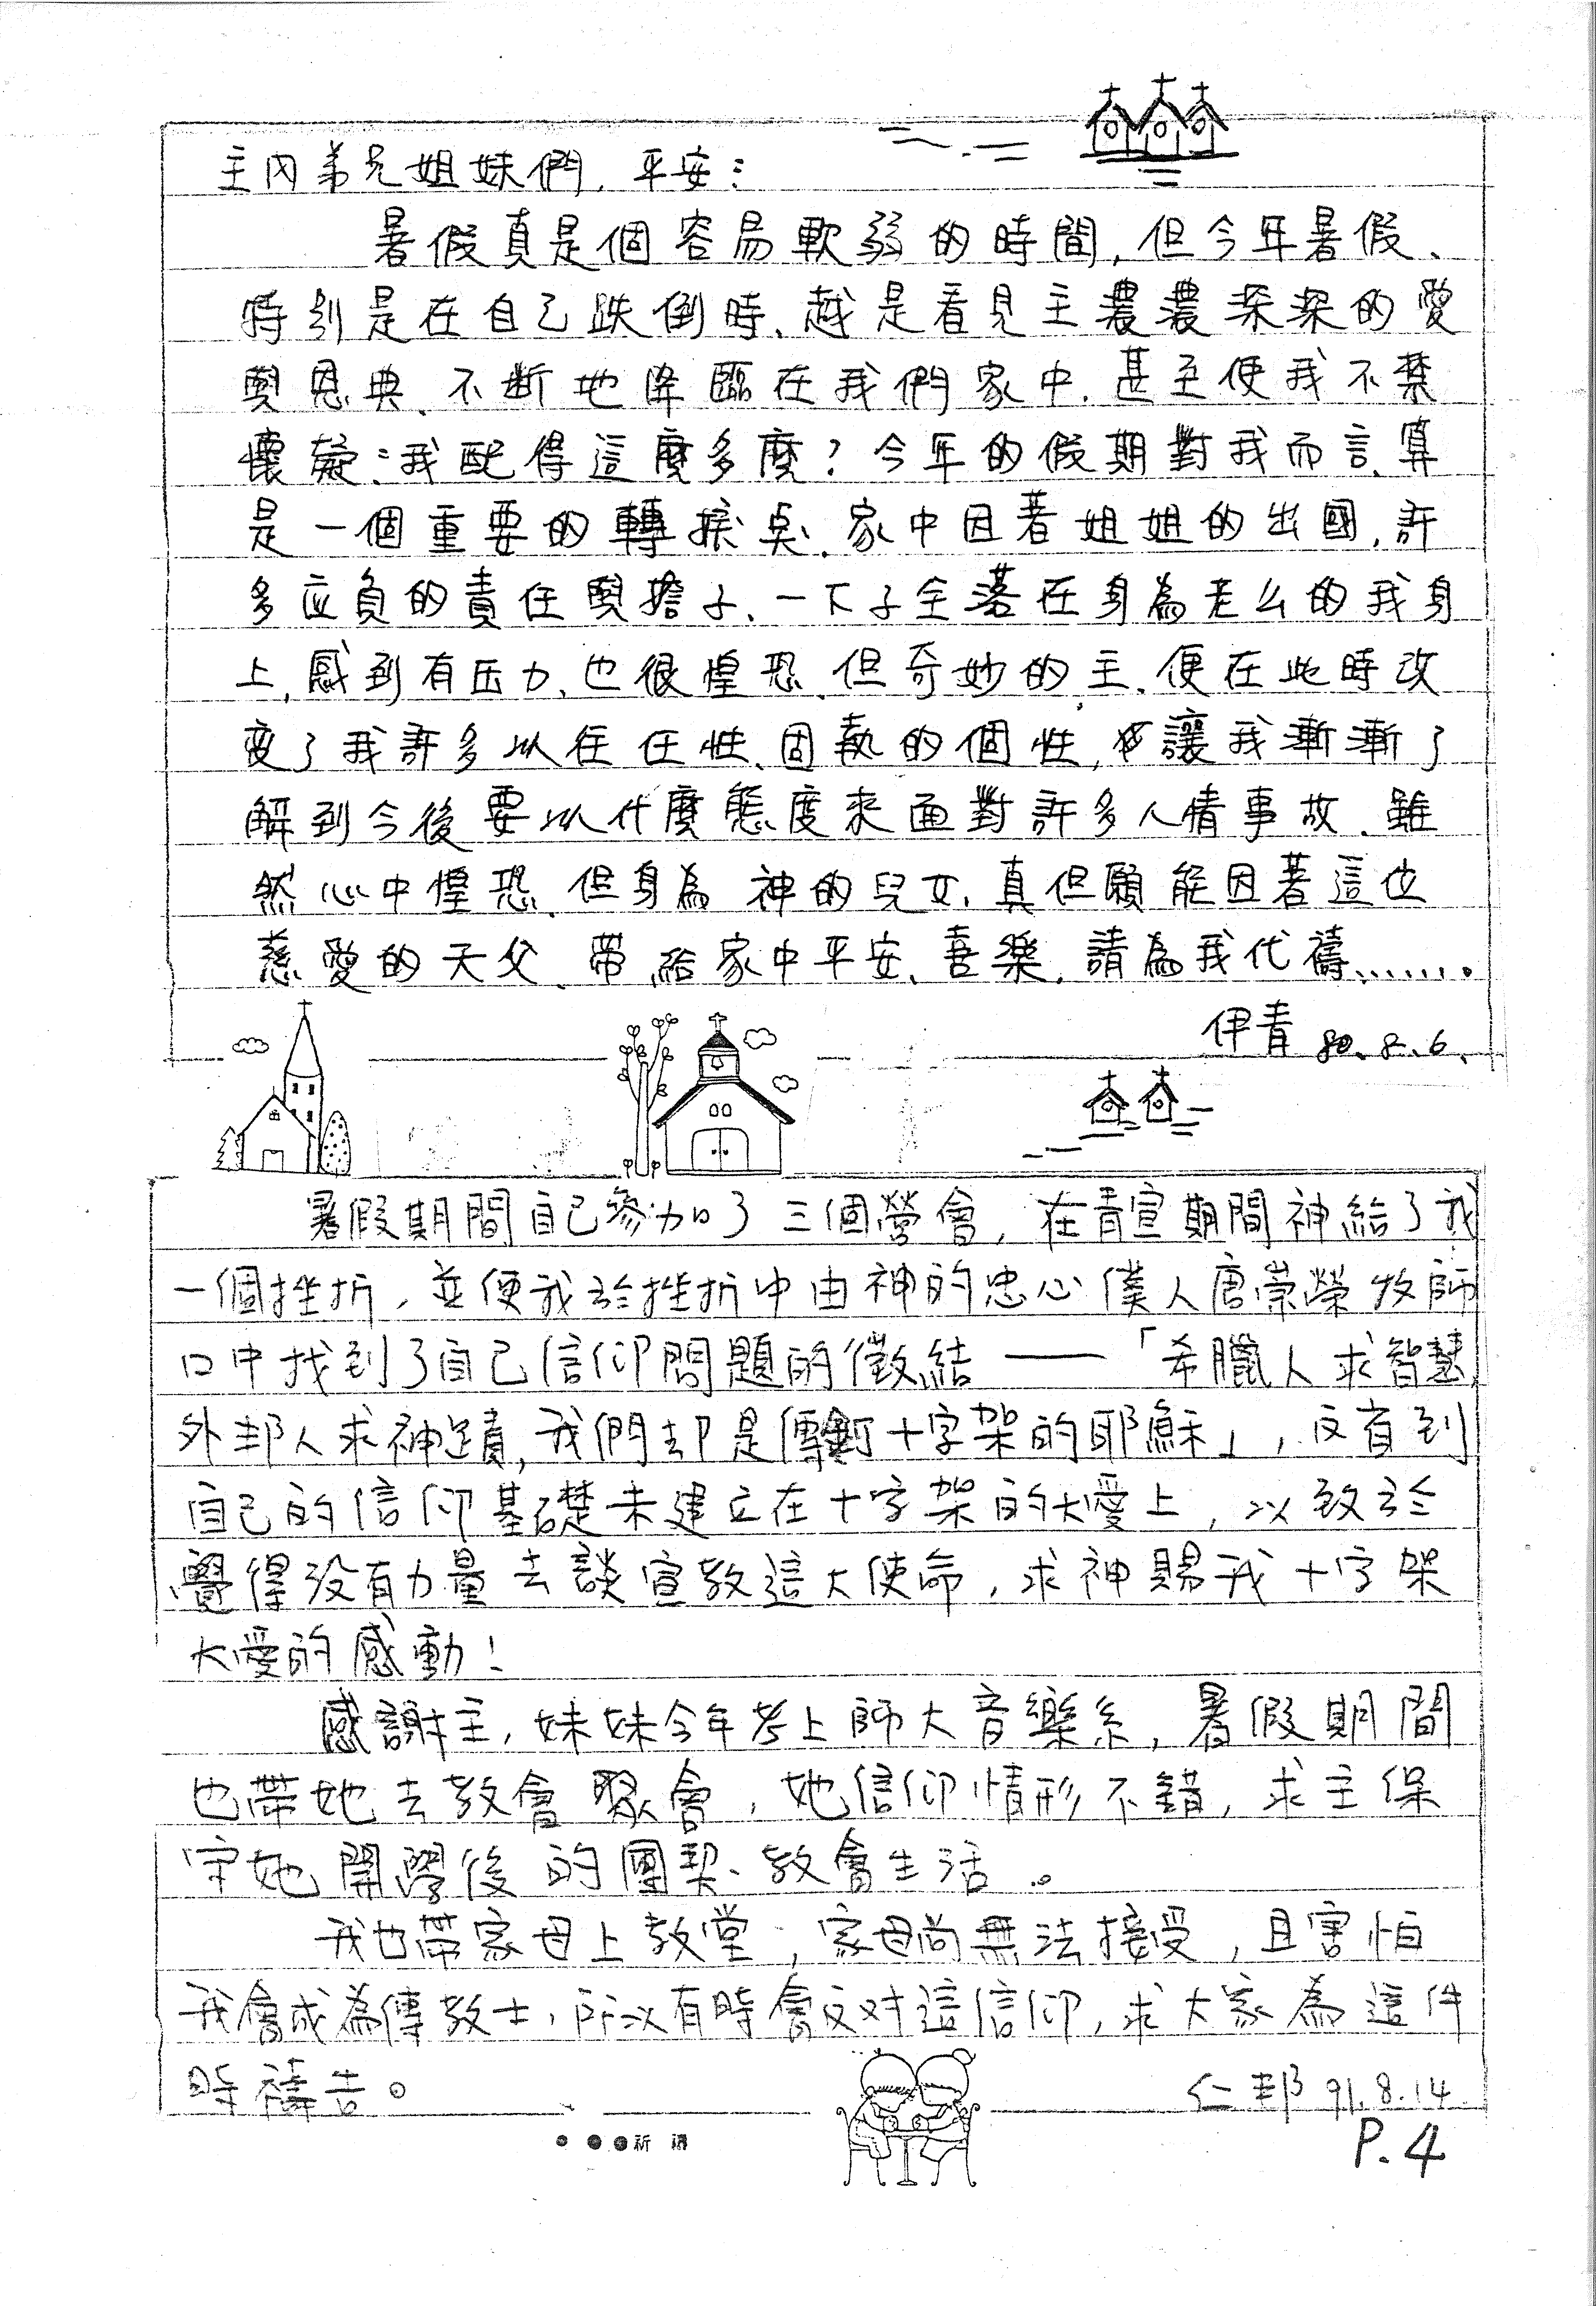 主內弟兄姐妹們，平安：
暑假真是個容易軟弱的時間，但今年暑假、
特別是在自己跌倒時、越是看見主濃濃深深的愛
與恩典、不斷地降臨在我們家中，甚至使我不禁
懷疑：我配得這麼多麼？今年的假期對我而言、算
是一個重要的轉捩點，家中因著姐姐的出國，許
多应負的責任與擔子、一下子全落在身為老么的我身
上，感到有压力、也很惶恐，但奇妙的主、便在此時改
变了我許多以往任性、固執的個性，讓我漸漸了
解到今後要以什麼態度來面對許多人情事故，雖
然心中惶恐、但身為 神的兒女，真但願能因著這位
慈愛的天父、帶給家中平安、喜樂，請為我代禱……。
伊青 80.8.6.
暑假期間自己參加了三個營會，在青宣期間神給了我
一個挫折，並使我於挫折中由神的忠心僕人唐崇榮牧師
口中找到了自己信仰問題的癥結——「希臘人求智慧，
外邦人求神蹟，我們却是傳釘十字架的耶穌」，反省到
自己的信仰基礎未建立在十字架的大愛上，以致於
覺得没有力量去談宣教這大使命，求神賜我十字架
大愛的感動！
感謝主，妹妹今年考上師大音樂系，暑假期間
也帶她去教會聚會，她信仰情形不錯，求主保
守她開學後的團契、教會生活。
我也帶家母上教堂，家母尚無法接受，且害怕
我會成為傳教士，所以有時會反对這信仰，求大家為這件
時禱告。
仁邦 91.8.14
●●●祈禱
P.4